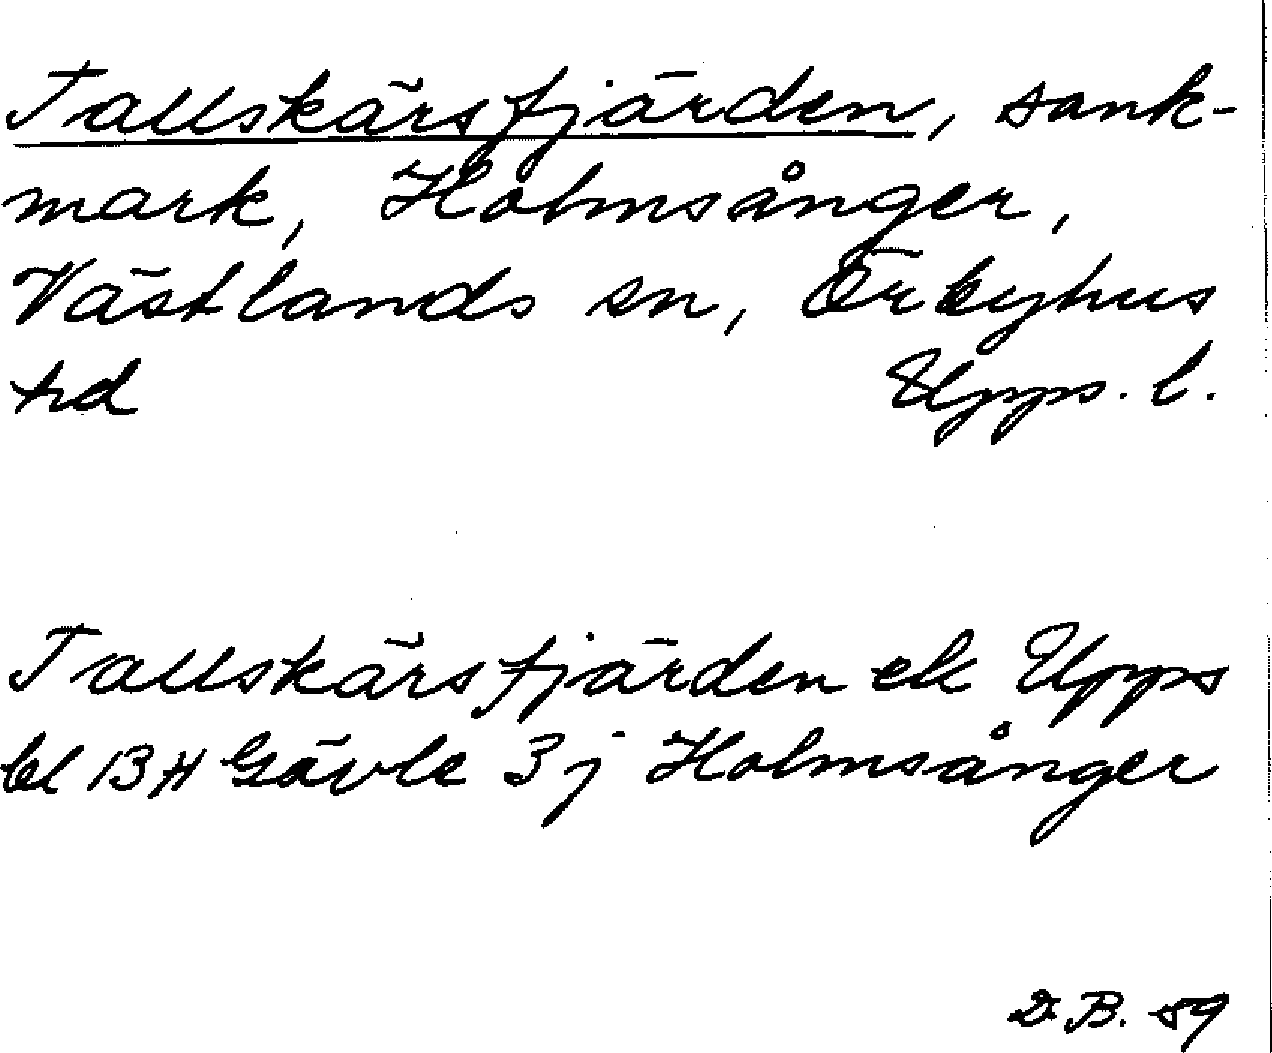 Tallskärsfjärden, sank-
mark, Holmsånger,
Västlands sn, Örbyhus
hd Upps. l.
Tallskärsfjärden ek Upps
bl 13 H Gävle 3 j Holmsånger
D.B. 59